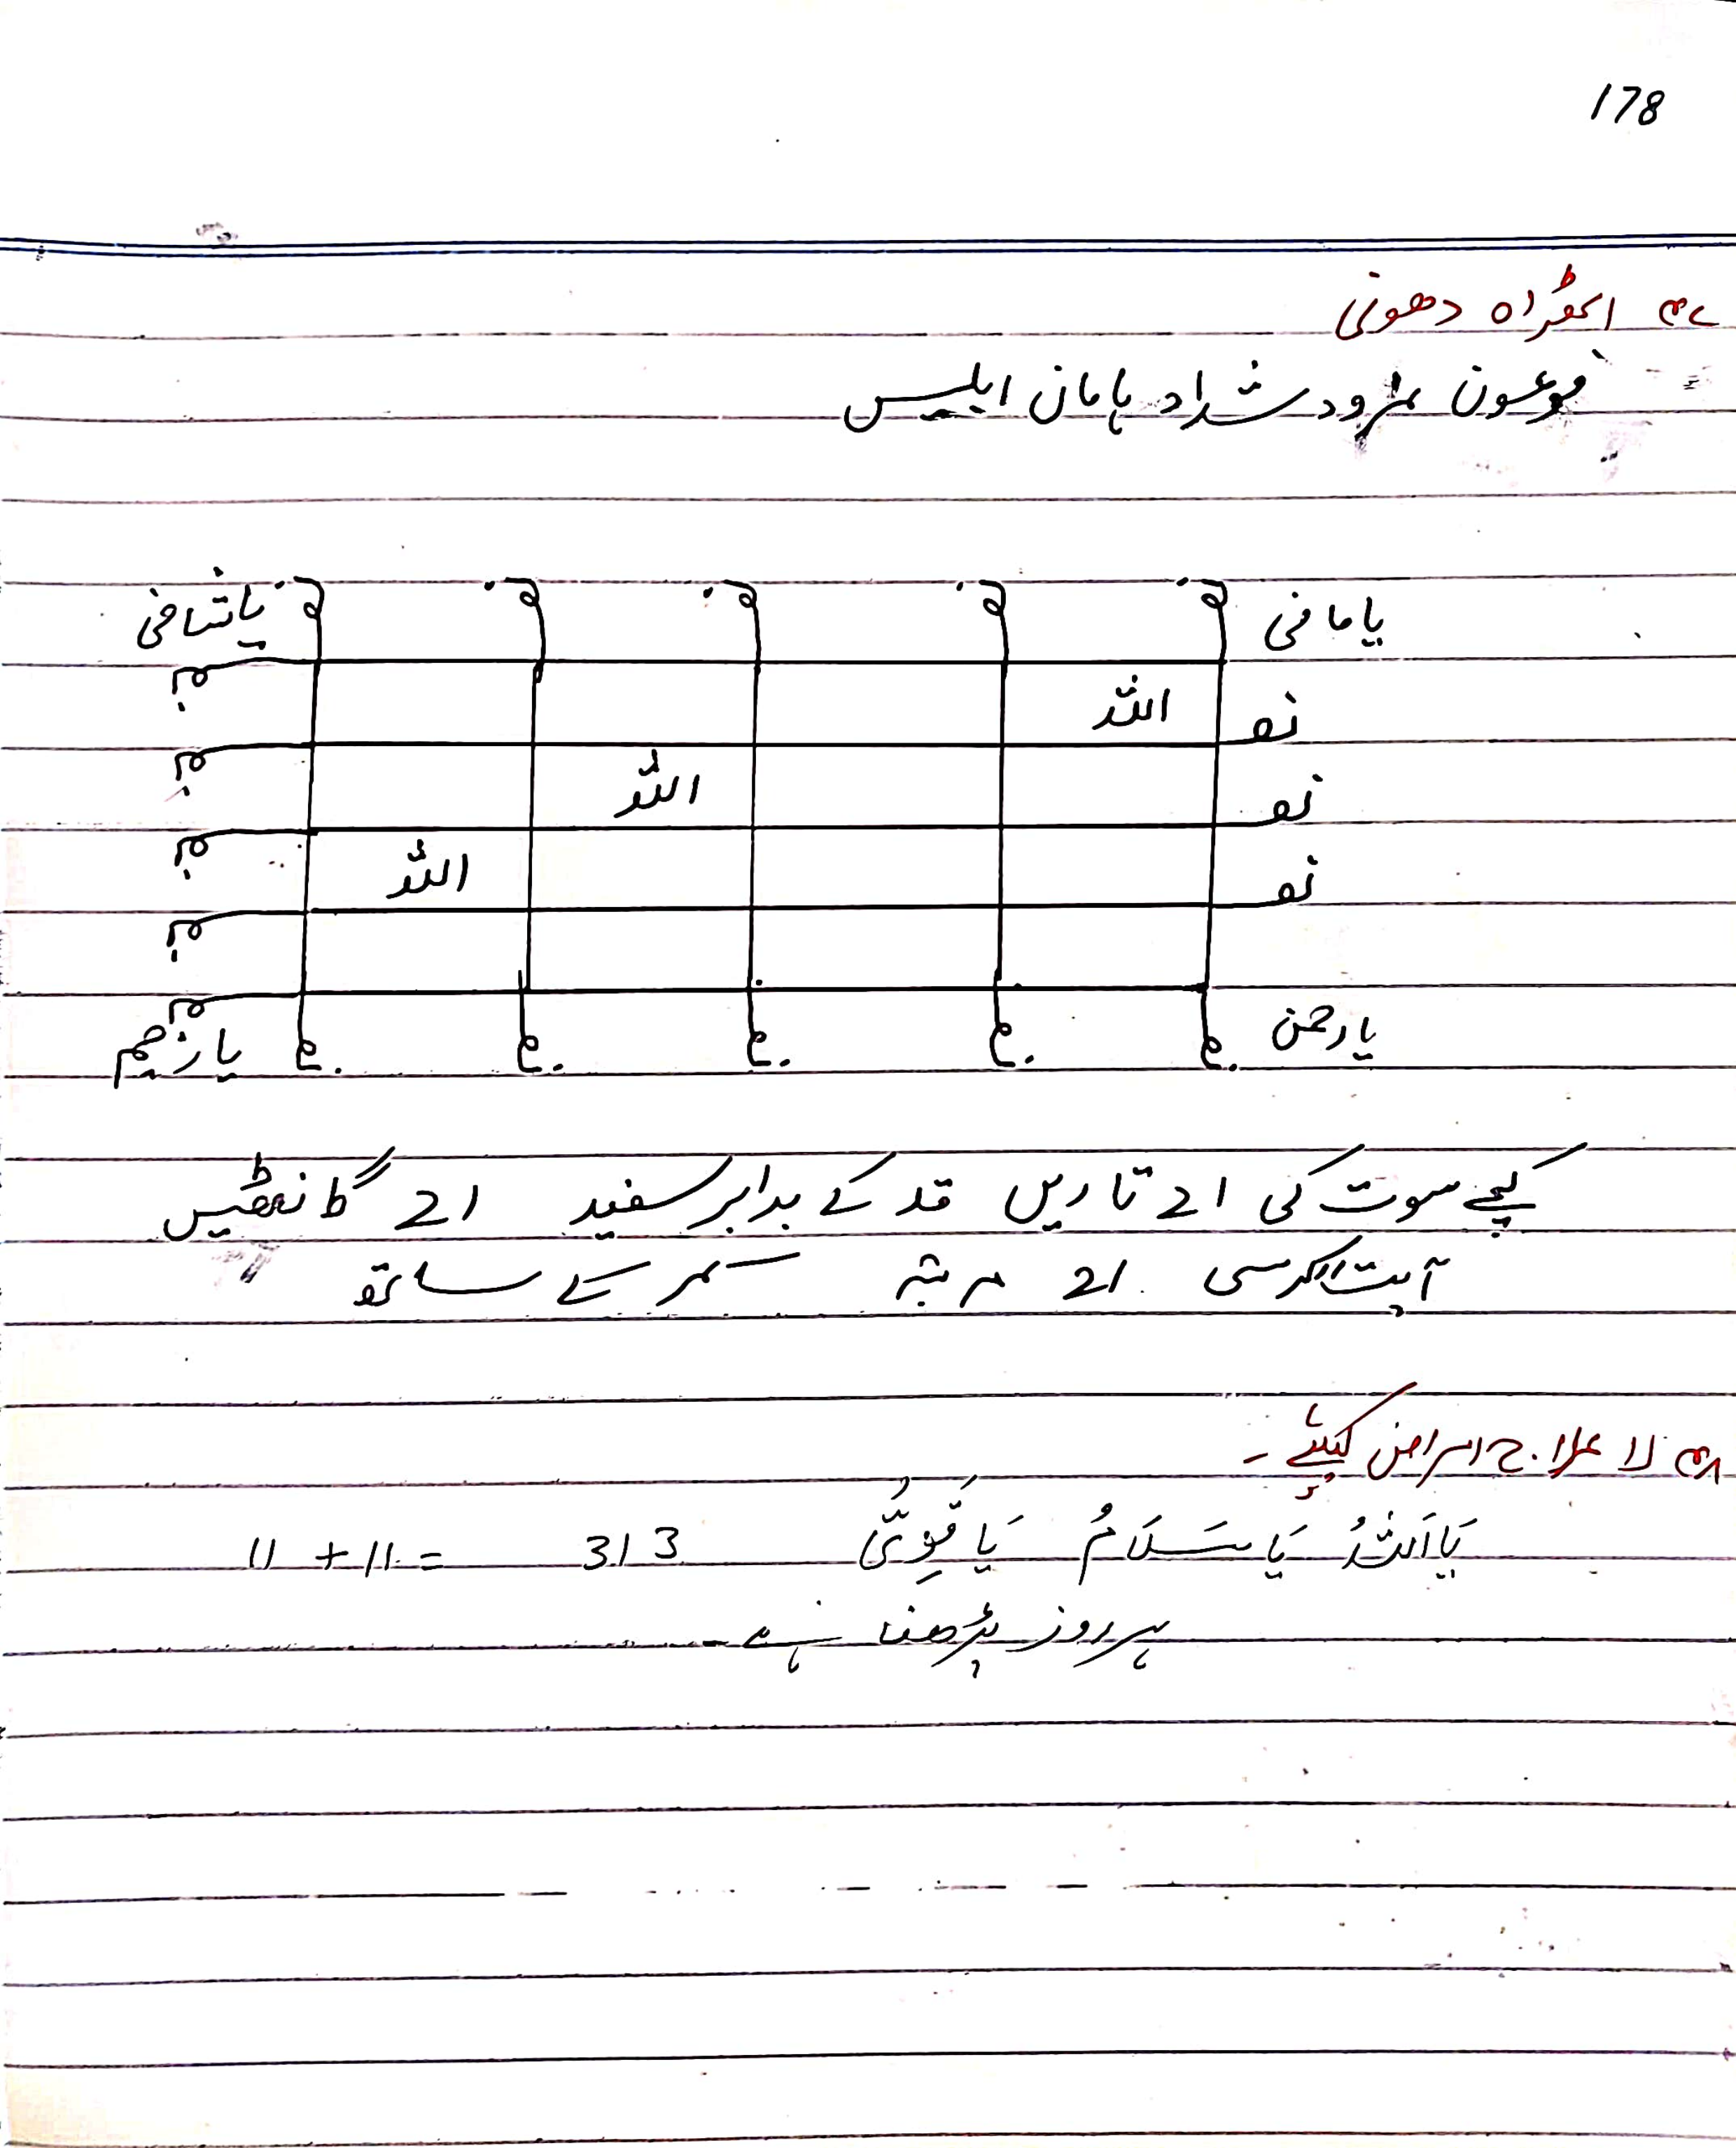 178
اٹھراہ دھونی
فرعون نمرود شداد ہامان ابلیس
یا شافی یا مافی
اللہ
اللہ
اللہ
یا رحمن یا رحیم
کچے سوت کی 21 تاریں قد کے برابر سفید 21 گانٹھیں
آیت الکرسی 21 مرتبہ کے ساتھ
لا علاج امراض کیلئے ۔
یَا اَللہُ یَا سَلَامُ یَا قَوِیُّ 313 = 11 + 11
ہر روز پڑھنا ہے ۔